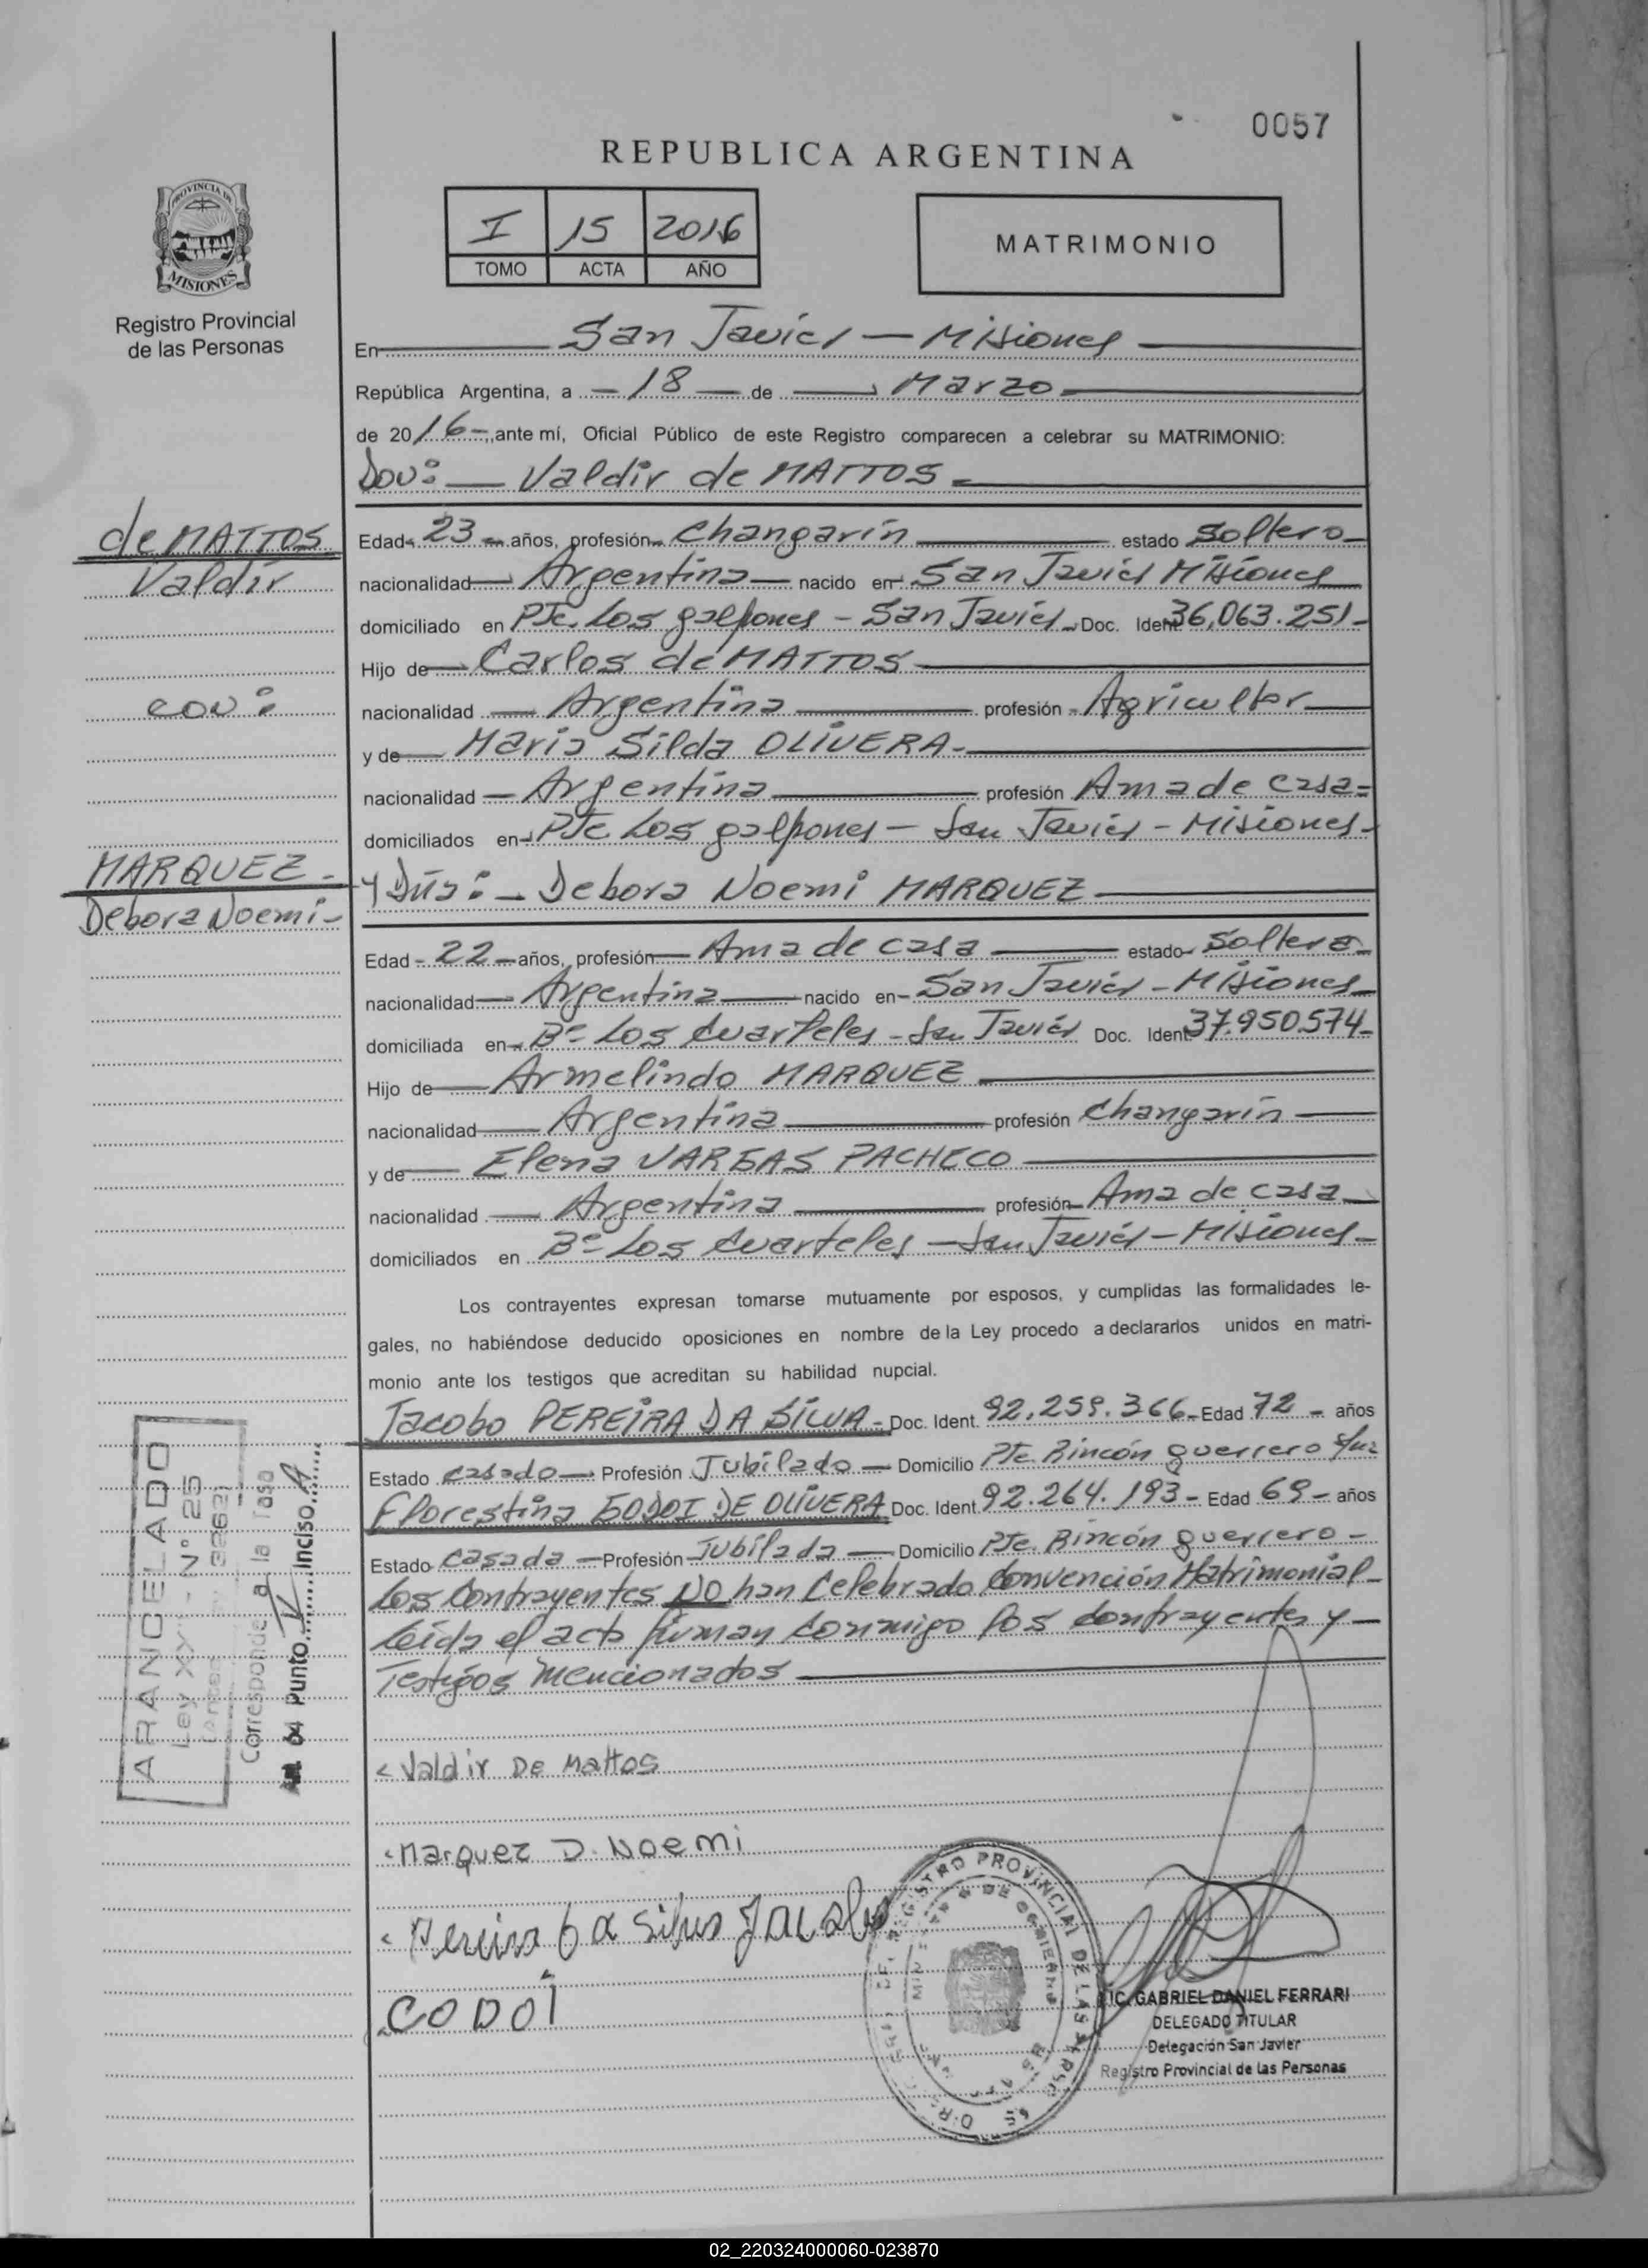 0057
REPUBLICA ARGENTINA
I 15 2016
TOMO ACTA AÑO
MATRIMONIO
PROVINCIA DE
MISIONES
Registro Provincial
de las Personas
En San Javier - Misiones
República Argentina, a - 18 - de Marzo
de 2016-, ante mí, Oficial Público de este Registro comparecen a celebrar su MATRIMONIO:
Don: - Valdir de MATTOS -
de MATTOS
Valdir
con:
MARQUEZ -
Debora Noemi -
Edad 23 - años, profesión Changarín estado Soltero
nacionalidad Argentina nacido en San Javier Misiones
domiciliado en Pje. Los galpones - San Javier Doc. Ident 36,063.251-
Hijo de Carlos de MATTOS
nacionalidad Argentina profesión Agricultor
y de Maria Silda OLIVERA -
nacionalidad Argentina profesión Ama de casa =
domiciliados en Pje Los galpones - San Javier - Misiones -
y Dña: - Debora Noemi MARQUEZ
Edad - 22 - años, profesión Ama de casa estado Soltera
nacionalidad Argentina nacido en San Javier - Misiones
domiciliada en Bº Los Cuarteles - San Javier Doc. Ident 37.950.574-
Hijo de Armelindo MARQUEZ
nacionalidad Argentina profesión Changarín
y de Elena VARGAS PACHECO
nacionalidad Argentina profesión Ama de casa
domiciliados en Bº Los Cuarteles - San Javier - Misiones -
Los contrayentes expresan tomarse mutuamente por esposos, y cumplidas las formalidades le-
gales, no habiéndose deducido oposiciones en nombre de la Ley procedo a declararlos unidos en matri-
monio ante los testigos que acreditan su habilidad nupcial.
Jacobo PEREIRA DA SILVA - Doc. Ident. 92.259.366 - Edad 72 - años
Estado Casado - Profesión Jubilado - Domicilio Pje. Rincón guerrero
Florestina GODOI DE OLIVERA Doc. Ident. 92.264.193 - Edad 69 - años
Estado Casada - Profesión Jubilada - Domicilio Pje. Rincón guerrero -
Los Contrayentes NO han Celebrado Convención Matrimonial
Leída el acta firman conmigo los contrayentes y
Testigos mencionados
ARANCELADO
Ley XXI - Nº 25
Corresponde a la Tasa
Punto V Inciso A
Valdir De Mattos
Marquez D. Noemi
Pereira da Silva Jacobo
CODOI
REGISTRO PROVINCIAL DE LAS PERSONAS
LIC. GABRIEL DANIEL FERRARI
DELEGADO TITULAR
Delegación San Javier
Registro Provincial de las Personas
02_220324000060-023870